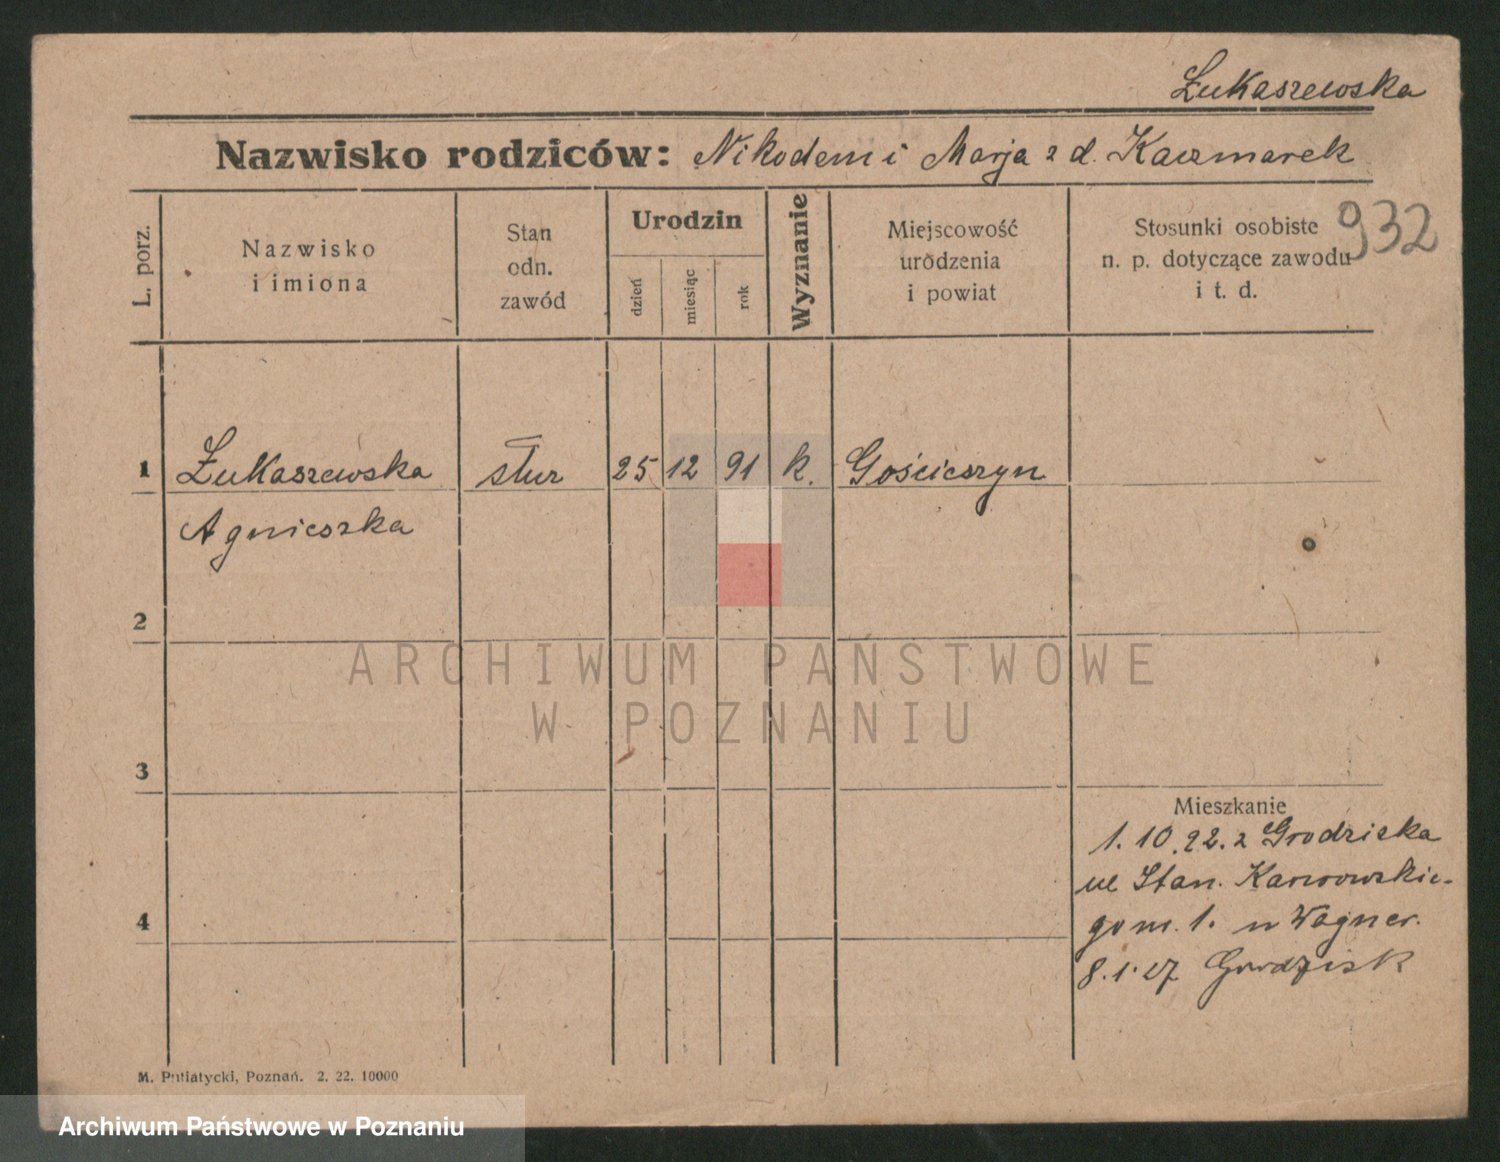 Łukaszewska
Nazwisko rodziców: Nikodem i Marja z d. Kaczmarek
L. porz.
Nazwisko
i imiona
Stan
odn.
zawód
Urodzin
dzień
miesiąc
rok
Wyznanie
Miejscowość
urodzenia
i powiat
Stosunki osobiste
n. p. dotyczące zawodu
i t. d.
932
1 Łukaszewska służ 25 12 91 k. Gościeszyn
Agnieszka
2
ARCHIWUM PAŃSTWOWE
W POZNANIU
3
Mieszkanie
1. 10. 22. z Grodziska
ul Stan.
4
go m. 1. u Wagner.
8. 1. 27 Grodzisk
M. Putiatycki, Poznań. 2. 22. 10000
Archiwum Państwowe w Poznaniu